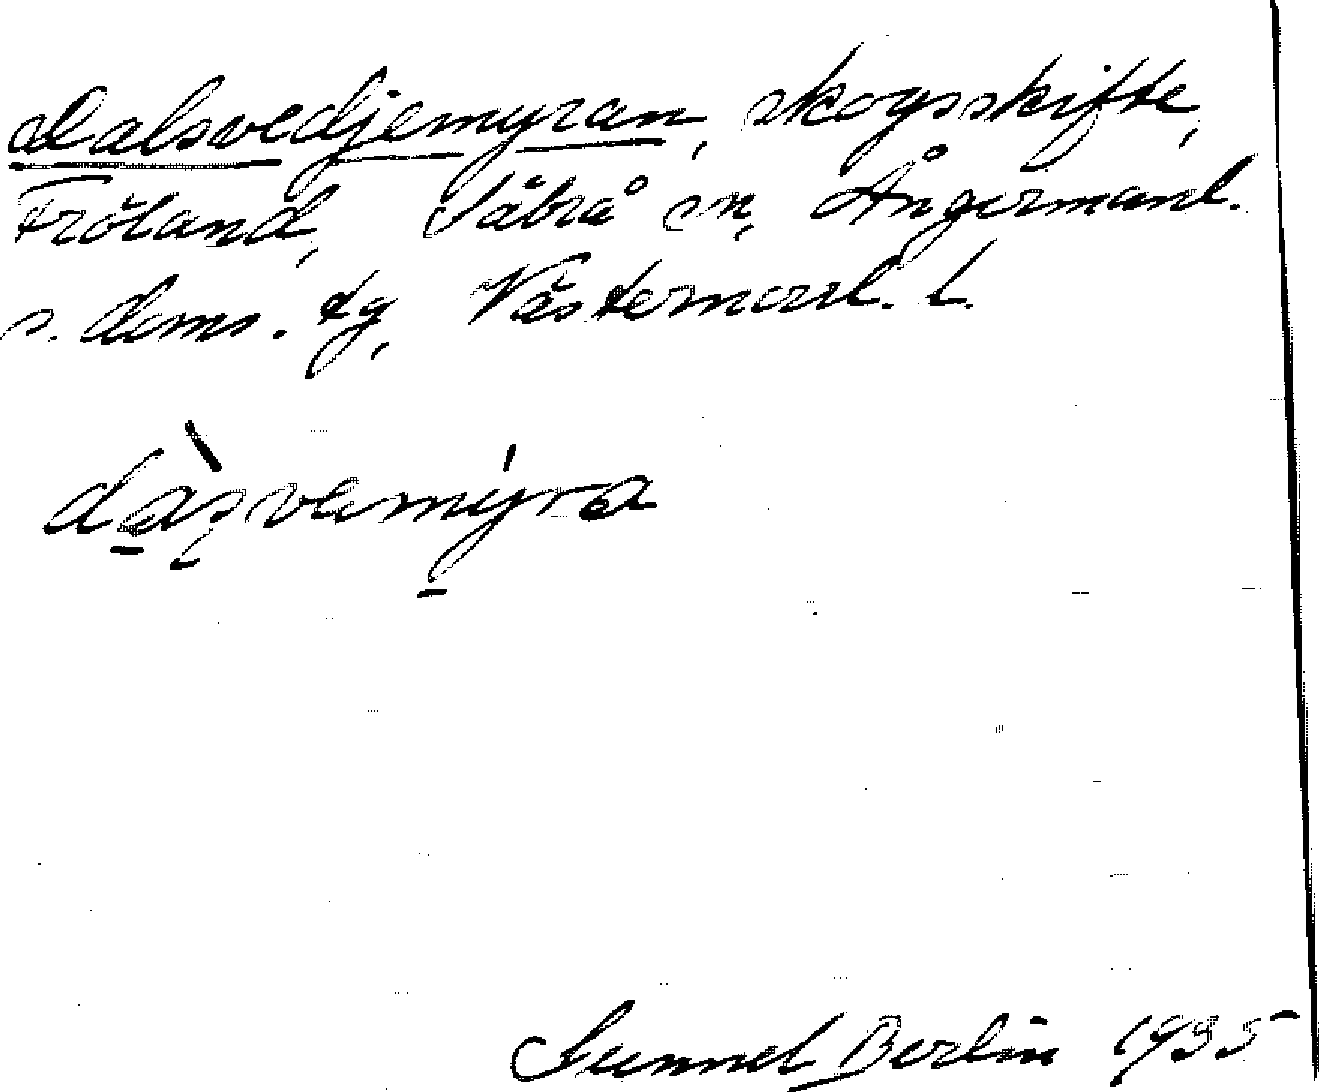 Dalsvedjemyran, skogsskifte,
Fröland, Säbrå sn, Ångermanl.
s. doms. tg, Västernorrl. l.
dàsvemýra
Gunnel Berlin 1935